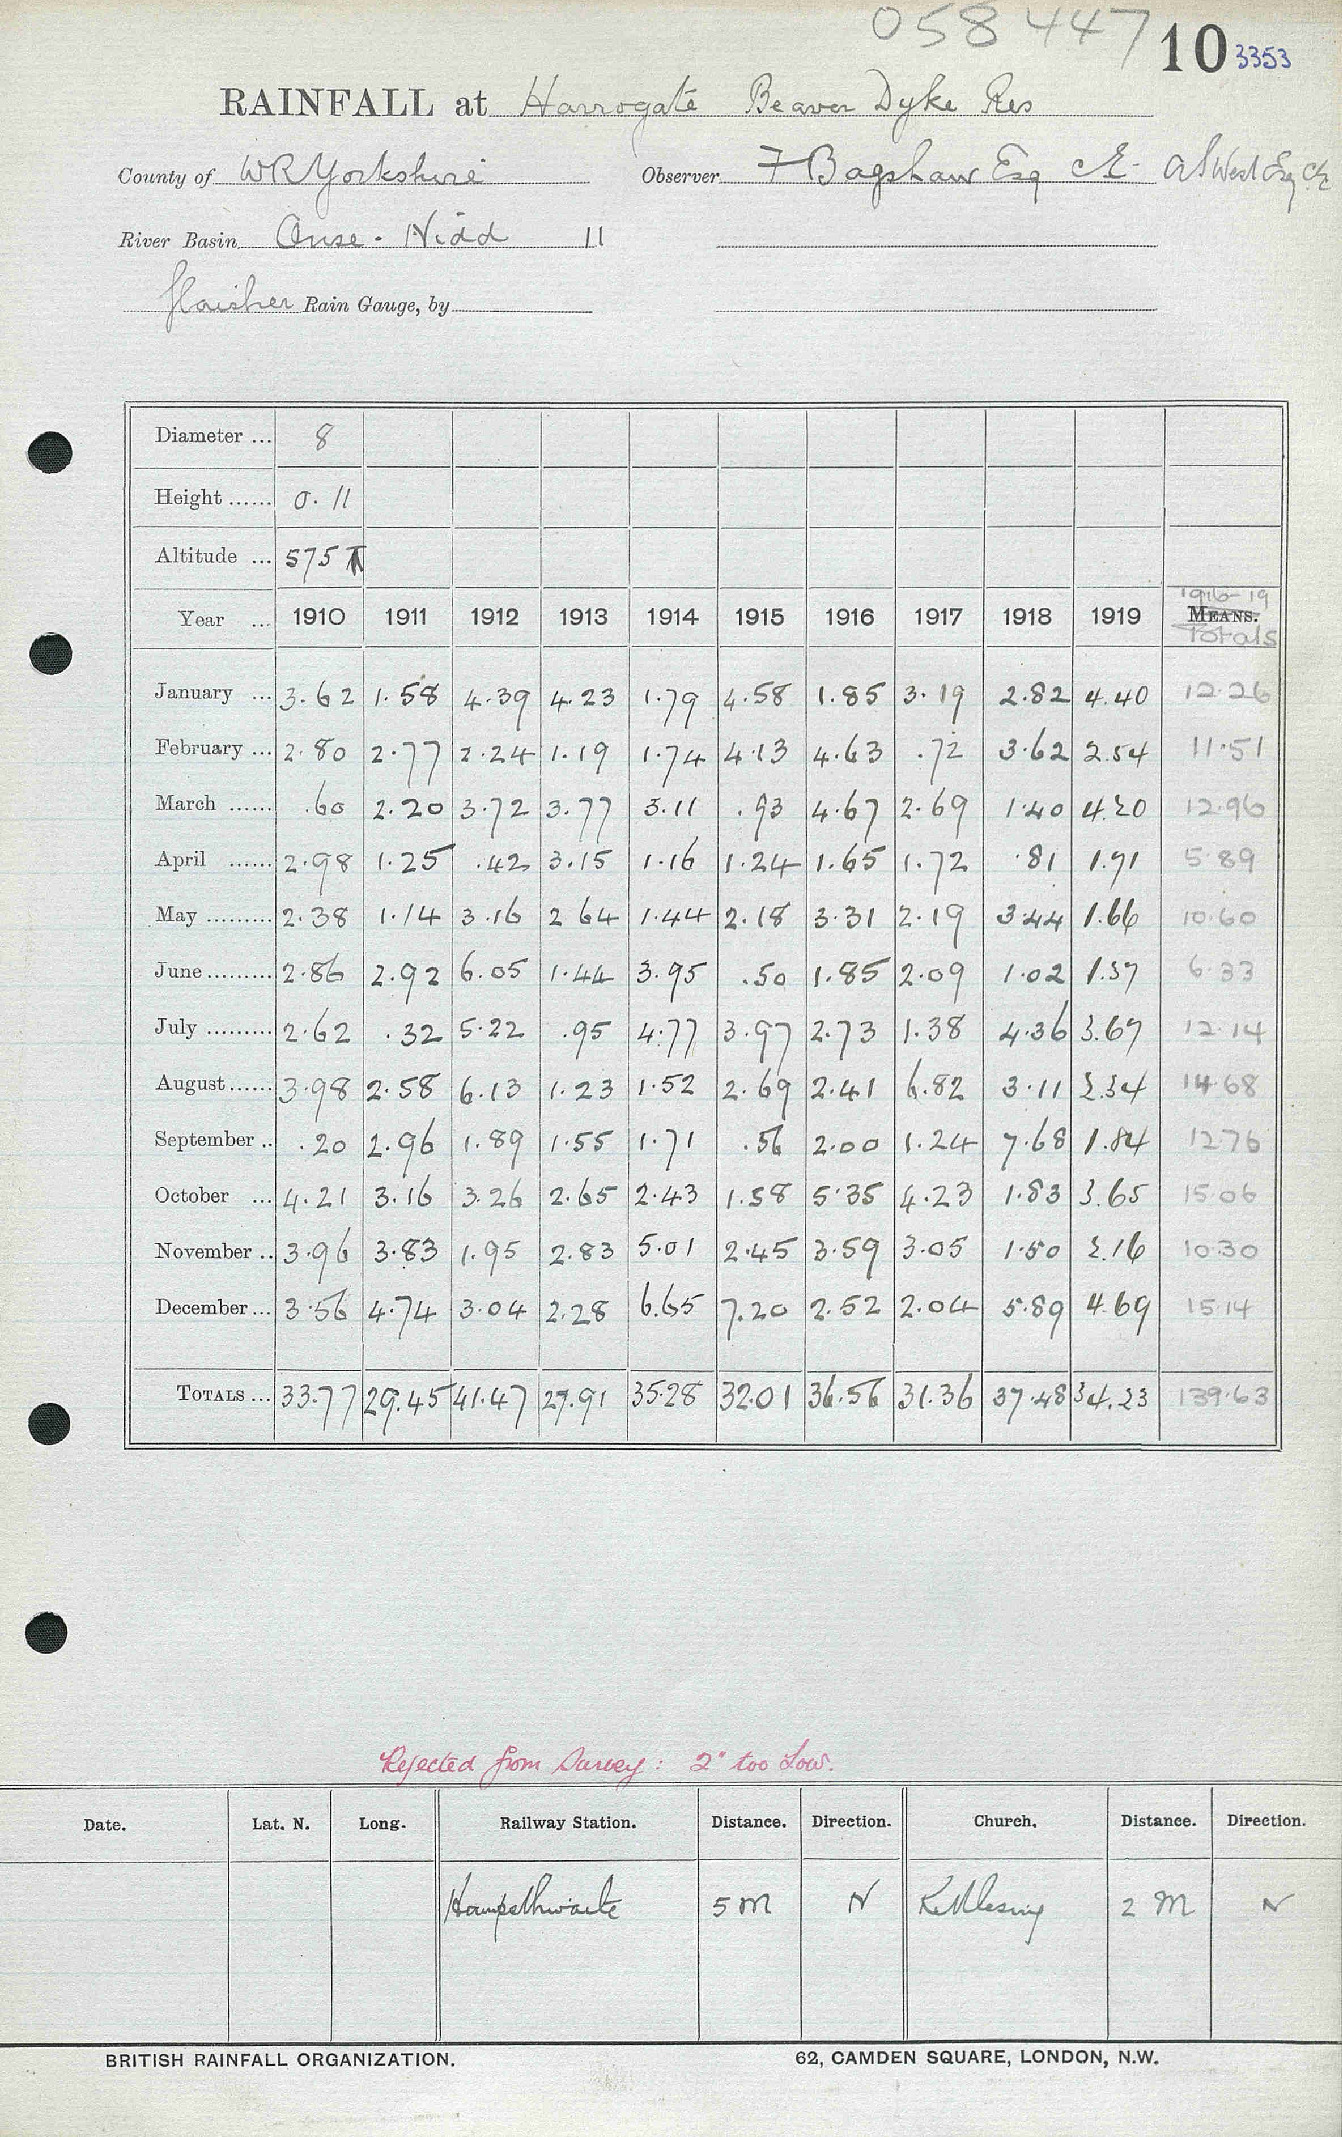 058447 10 3353
RAINFALL at Harrogate Beaver Dyke Res
County of WR Yorkshire Observer F Bagshaw Esq CE A S West Esq CE
River Basin Ouse . Nidd 11
Glaisher Rain Gauge, by
Diameter ... 8
Height ...... 0.11
Altitude ... 575 T
1916-19
Year ... 1910 1911 1912 1913 1914 1915 1916 1917 1918 1919 MEANS.
Totals
January ... 3.62 1.58 4.39 4.23 1.79 4.58 1.85 3.19 2.82 4.40 12.26
February ... 2.80 2.77 2.24 1.19 1.74 4.13 4.63 .72 3.62 2.54 11.51
March ...... .60 2.20 3.72 3.77 3.11 .93 4.67 2.69 1.40 4.20 12.96
April ...... 2.98 1.25 .42 3.15 1.16 1.24 1.65 1.72 .81 1.71 5.89
May ......... 2.38 1.14 3.16 2 64 1.44 2.18 3.31 2.19 3.44 1.66 10.60
June ......... 2.86 2.92 6.05 1.44 3.95 .50 1.85 2.09 1.02 1.37 6.33
July ......... 2.62 .32 5.22 .95 4.77 3.97 2.73 1.38 4.36 3.67 12.14
August ...... 3.98 2.58 6.13 1.23 1.52 2.69 2.41 6.82 3.11 2.34 14.68
September .. .20 2.96 1.89 1.55 1.71 .56 2.00 1.24 7.68 1.84 12.76
October ... 4.21 3.16 3.26 2.65 2.43 1.58 5.35 4.23 1.83 3.65 15.06
November .. 3.96 3.83 1.95 2.83 5.01 2.45 3.59 3.05 1.50 2.16 10.30
December ... 3.56 4.74 3.04 2.28 6.65 7.20 2.52 2.04 5.89 4.69 15.14
TOTALS ... 33.77 29.45 41.47 27.91 35.28 32.01 36.56 31.36 37.48 34.23 139.63
Rejected from Survey: 2" too Low.
Date. Lat. N. Long. Railway Station. Distance. Direction. Church. Distance. Direction.
Hampsthwaite 5 M N Kettlesing 2 M N
BRITISH RAINFALL ORGANIZATION. 62, CAMDEN SQUARE, LONDON, N.W.